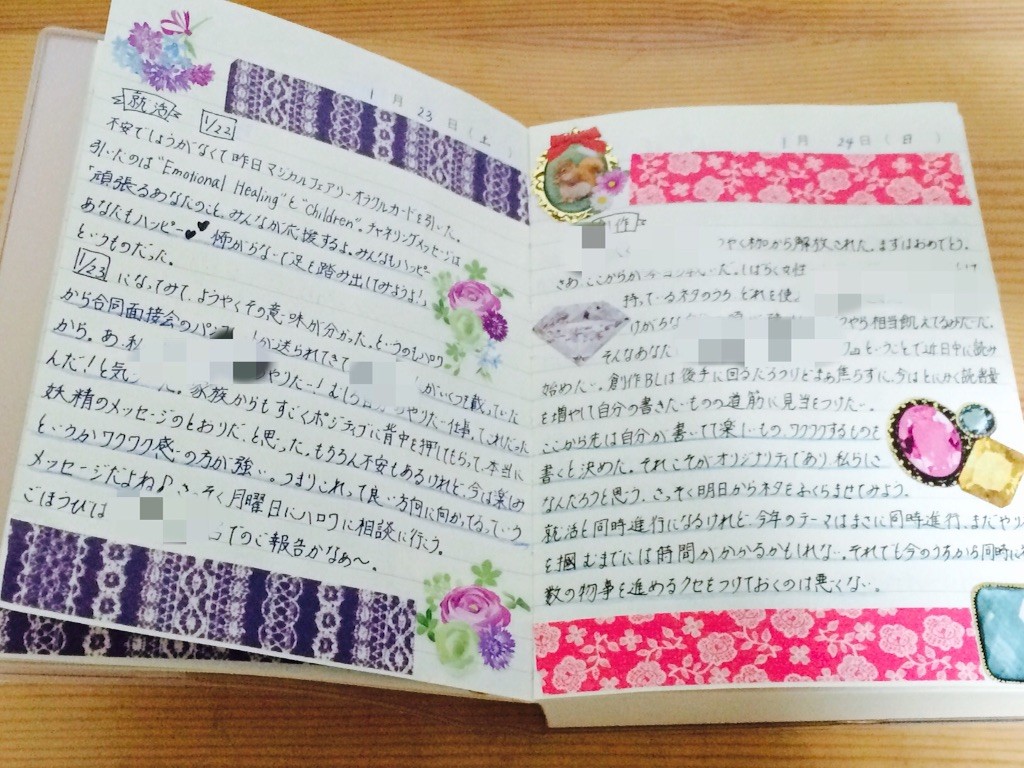 1月23日(土)
就活
1/22
不安でしょうがなくて昨日マジカルフェアリーオラクルカードを引いた。
引いたのは"Emotional Healing"と"Children"。チャネリングメッセージは
「頑張るあなたのこと、みんなが応援するよ。みんなもハッピー
あなたもハッピー 怖がらないで足を踏み出してみようよ!」
というものだった。
1/23 になってみて、ようやくその意味が分かった。というのもハロワ
から合同面接会の が送られてきて がいくつも載っていた
から。あ、私 やりたい!むしろ やりたい仕事ってこれだった
んだ!と気 た。家族からもすごくポジティブに背中を押してもらって、本当に
妖精のメッセージのとおりだ、と思った。もちろん不安もあるけれど、今は楽しみ
というかワクワク感の方が強い。つまりこれって良い方向に向かってるっていう
メッセージだよね♪さっそく月曜日にハロワに相談に行こう。
ごほうびは でのご報告かなぁ〜。
1月24日(日)
作
から解放された。まずはおめでとう。
さあ、ここからが しばらく女性
持っているネタのうち、どれを使
やら相当飢えてるみたいだ。
そんなあなた ということで近日中に読み
始めたい。創作BLは後手に回るだろうけどまぁ焦らずに、今はとにかく読書量
を増やして自分の書きたいものの道筋に見当をつけたい。
ここから先は自分が書いてて楽しいもの、ワクワクするものを
書くと決めた。それこそがオリジナリティであり、私らし
なんだろうと思う。さっそく明日からネタをふくらませてみよう。
就活と同時進行になるけれど、今年のテーマはまさに同時進行。まだやり
を掴むまでには時間がかかるかもしれない、それでも今のうちから同時に
数の物事を進めるクセをつけておくのは悪くない。